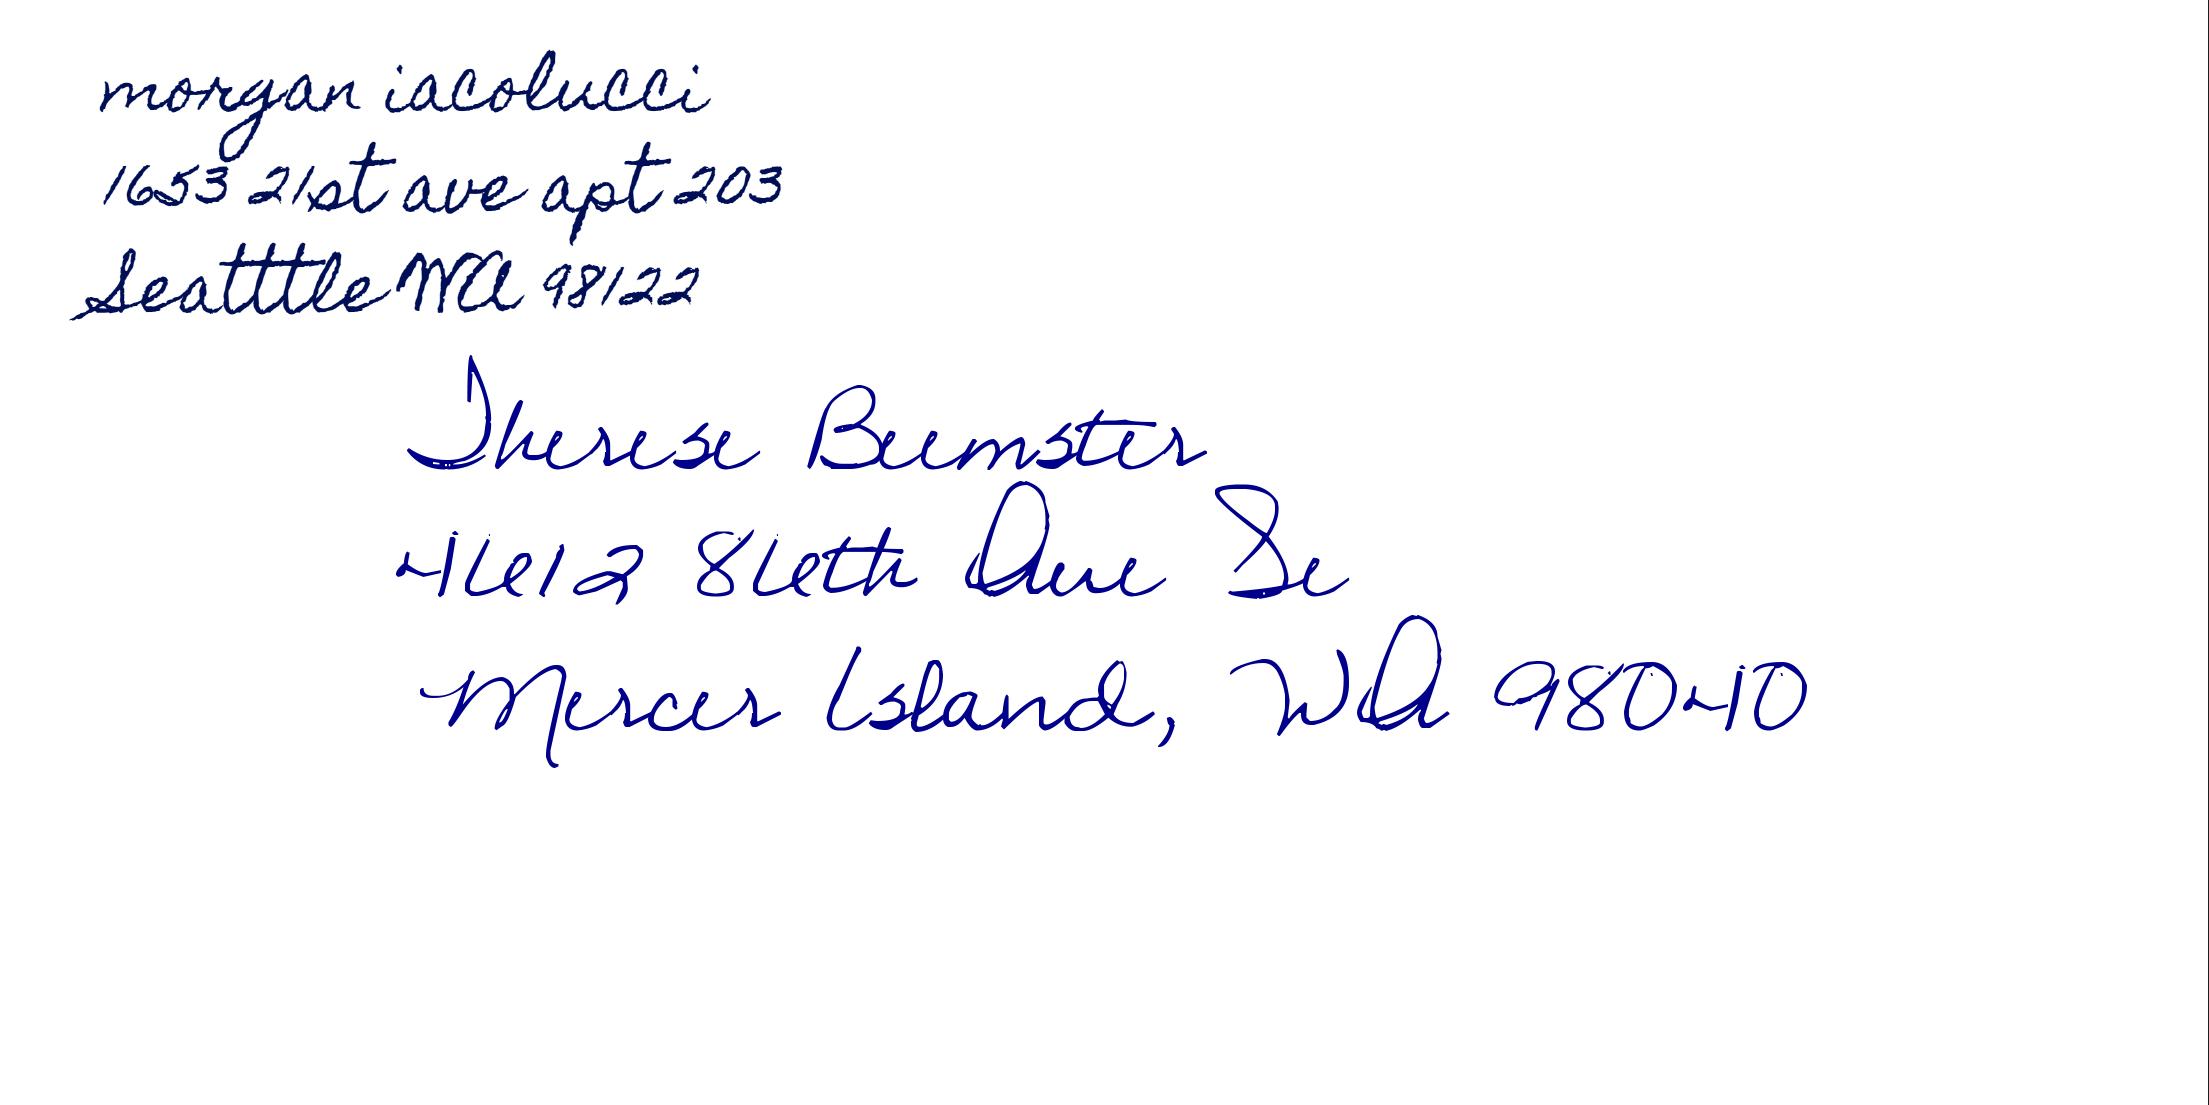 morgan iacolucci
1653 21st ave apt 203
Seatttle WA 98122
Therese Beemster
4612 86th Ave Se
Mercer Island, WA 98040